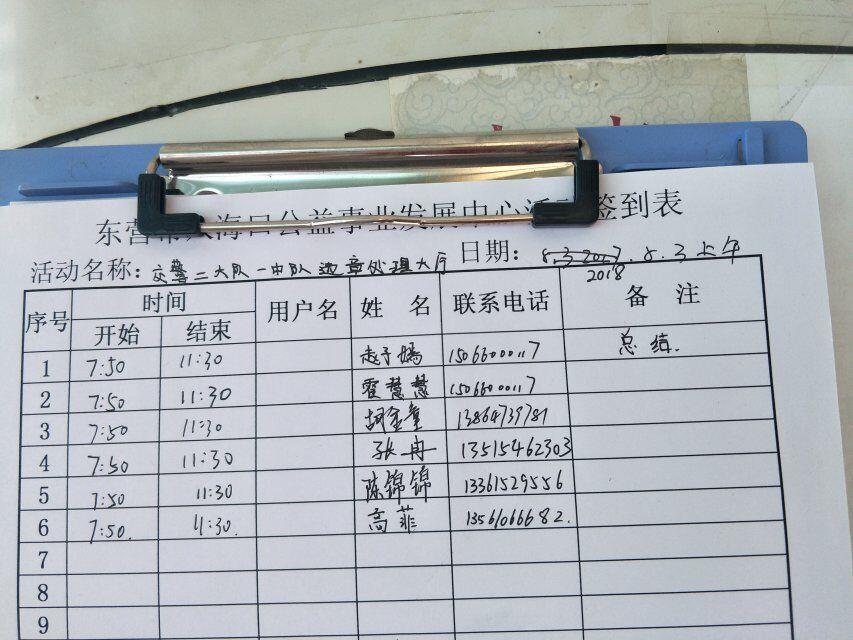 东营市 海口公益事业发展中心活 签到表
活动名称：交警二大队一中队违章处理大厅 日期： 2018.8.3上午
序号 时间 用户名 姓 名 联系电话 备 注
开始 结束
1 7:50 11:30 赵子嫣 15066000117 总结.
2 7:50 11:30 霍慧慧 15066000117
3 7:50 11:30 胡金童 13864739781
4 7:50 11:30 张冉 13515462303
5 7:50 11:30 陈锦锦 13361529556
6 7:50. 11:30. 高菲 13561066682.
7
8
9